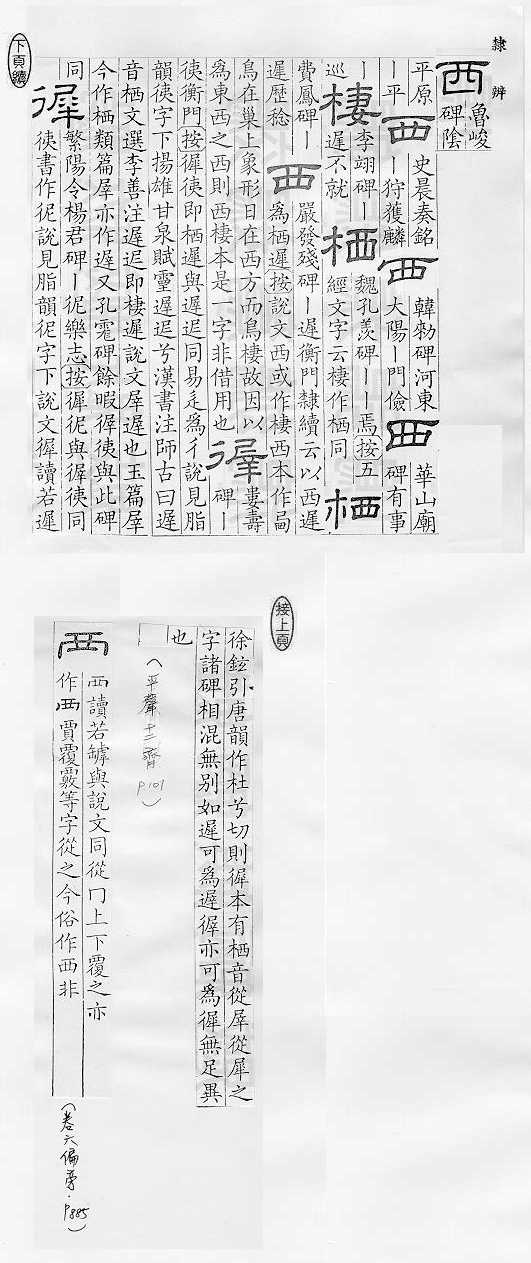 隸辨
西 魯峻
碑陰
平原 史晨奏銘 韓勑碑河東 華山廟
｜平 西 ｜狩獲麟 西 大陽｜門儉 西 碑有事
｜ 李翊碑｜ 魏孔羨碑｜｜焉按五
巡 棲 遲不就 栖 經文字云棲作栖同 栖
費鳳碑｜ 嚴發殘碑｜遲衡門隸續云以西遲
遲歷稔 西 爲栖遲按說文西或作棲西本作㢴
鳥在巢上象形日在西方而鳥棲故因以 婁壽
為東西之西則西棲本是一字非借用也 徲 碑｜
徚衡門按徲徚即栖遲與遲迟同易辵為彳說見脂
韻徚字下揚雄甘泉賦靈遲迟兮漢書注師古曰遲
音栖文選李善注遲迟即棲遲說文犀遲也玉篇犀
今作栖類篇犀亦作遲又孔宙碑餘暇徲徚與此碑
同 繁陽令楊君碑｜㣇樂志按徲㣇與徲徚同
徲 徚書作㣇說見脂韻㣇字下說文徲讀若遲
下頁續
接上頁
徐鉉引唐韻作杜兮切則徲本有栖音從犀從犀之
字諸碑相混無別如遲可為遲徲亦可為徲無足異
也
（平聲十二齊 P101）
襾 襾讀若罅與說文同從冂上下覆之亦
作覀賈覆覈等字從之今俗作西非
（卷六偏旁．P885）